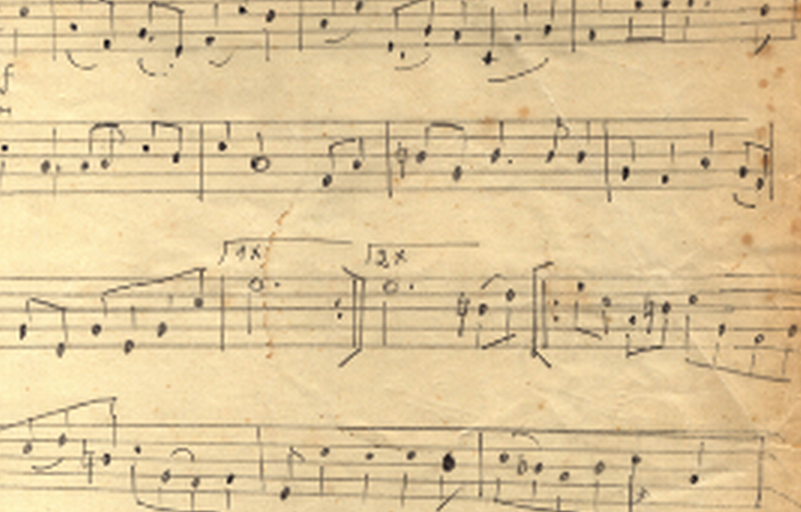 f
1x
2x